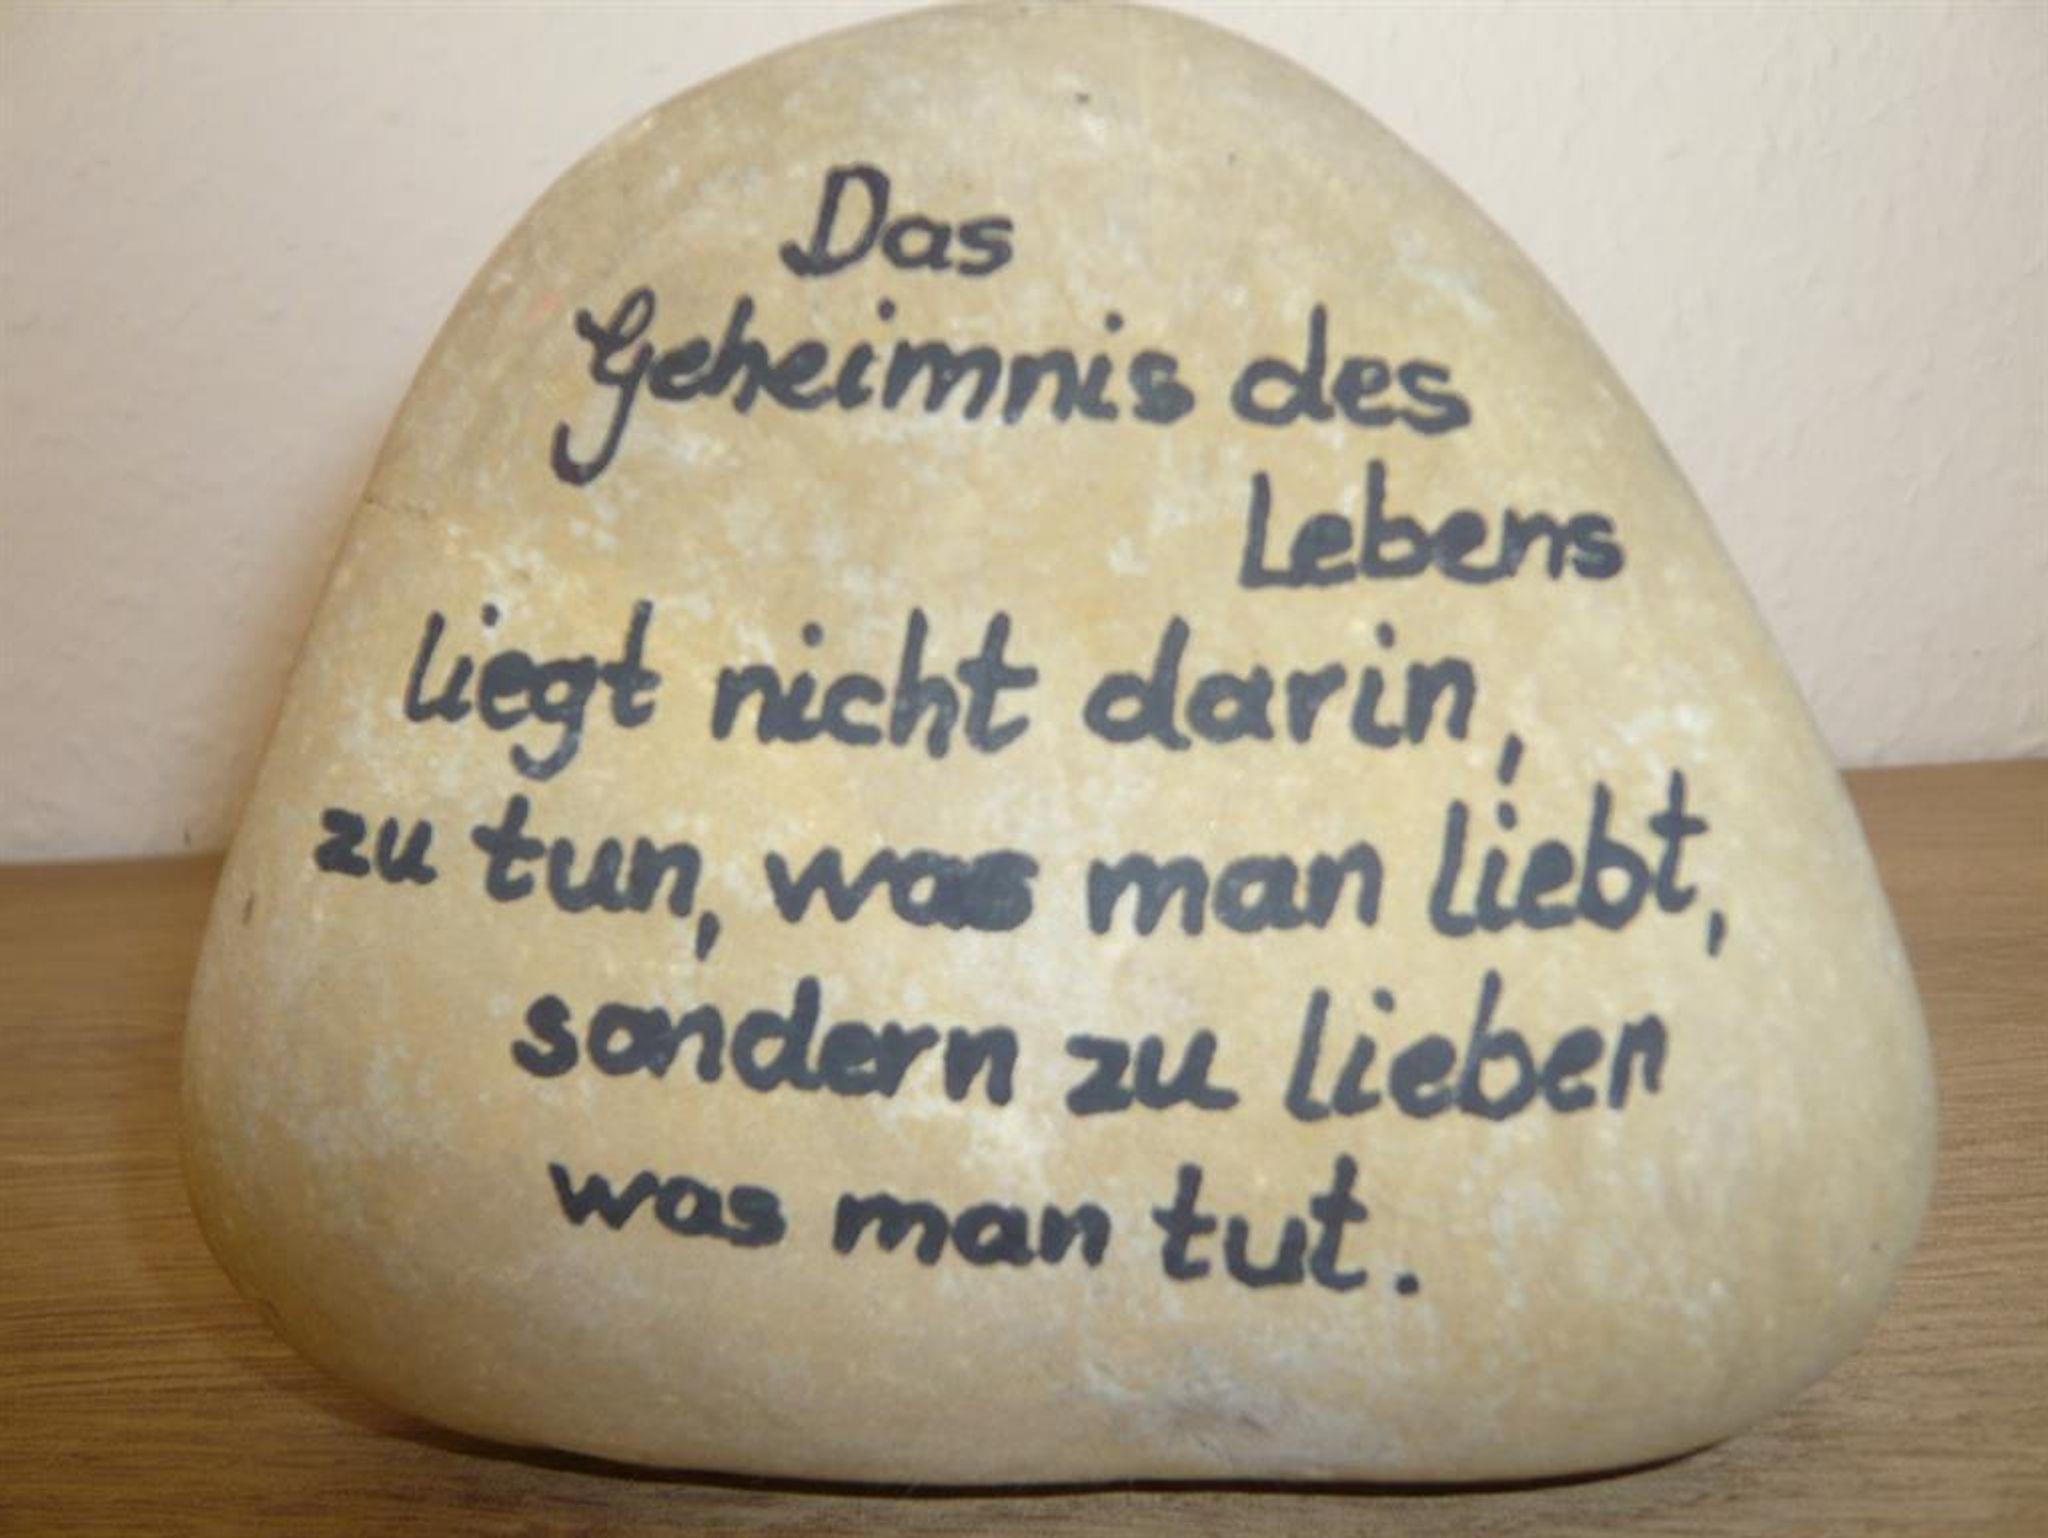 Das
Geheimnis des
Lebens
liegt nicht darin,
zu tun, was man liebt,
sondern zu lieben
was man tut.